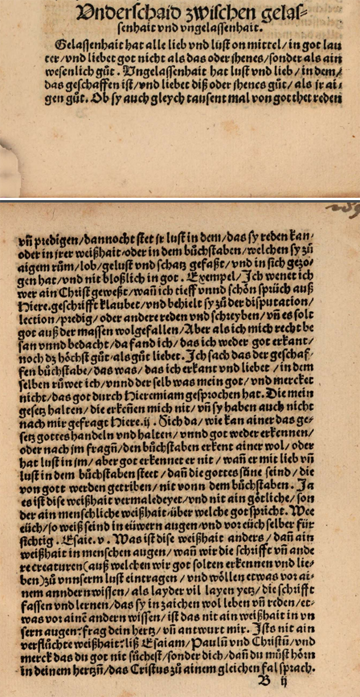 Vnderschaid zwischen gelas-
senhait vnd vngelassenhait.
Gelassenhait hat alle lieb vnd lust on mittel/ in got lau
ter/ vnd liebet got nicht als das oder jhenes/ sonder als ain
wesenlich gůt. Vngelassenhait hat lust vnd lieb/ in dem/
das geschaffen ist/ vnd liebet diß oder jhenes gůt/ als jr ai-
gen gůt. Ob sy auch gleych tausent mal von got thet reden
vñ predigen/ dannocht stet jr lust in dem/ das sy reden kan/
oder in jrer weißhait/ oder in dem bůchstaben/ welchen sy zů
aigem rům/ lob/ gelust vnd schatz gefaßt/ vnd in sich gezo-
gen hat/ vnd nit bloßlich in got. Exempel/ Ich wenet ich
wer ain Christ geweßt/ wañ ich tieff vnnd schön sprüch auß
Hiere. geschrifft klaubet/ vnd behielt sy zů der disputation/
lection/ predig/ oder andere reden vnd schreyben/ vñ es solt
got auß der massen wolgefallen/ Aber als ich mich recht be
san vnnd bedacht/ da fand ich/ das ich weder got erkant/
noch dz höchst gůt/ als gůt liebet. Ich sach das der geschaf-
fen bůchstabe/ das was/ das ich erkant vnd liebet/ in dem
selben růwet ich/ vnnd der selb was mein got/ vnd mercket
nicht/ das got durch Hieremiam gesprochen hat. Die mein
gesetz halten/ die erkeñen mich nit/ vñ sy haben auch nicht
nach mir gefragt Hiere. ij. Sich da/ wie kan ainer das ge-
setz gottes handeln vnd halten/ vnnd got weder erkennen/
oder nach jm fragñ/ den bůchstaben erkent ainer wol/ oder
hat lust in jm/ aber got erkennet er nit/ wañ er mit lieb vñ
lust in dem bůchstaben steet/ dañ die gottes süne seind/ die
von gott werden getriben/ nit vonn dem bůchstaben. Ja
es ist dise weißhait vermaledeyet/ vnd nit ain götliche/ son
der ain menschliche weißhait/ über welche got spricht. Wee
eüch/ so weiß seind in eüwern augen/ vnd vor eüch selber für
sichtig. Esaie. v. Was ist dise weißhait anders/ dañ ain
weißhait in menschen augen/ wañ wir die schifft vñ ande
re creaturen (auß welchen wir got solten erkennen vnd lie-
ben) zů vnnserm lust eintragen/ vnd wöllen etwas vor ai-
nem anndern wissen/ als layder vil layen yetz/ die schifft
fassen vnd lernen/ das sy in zaichen wol leben vñ reden/ et-
was vor ainē andern wissen/ ist das nit ain weißhait in vn
sern augen: frag dein hertz/ vñ antwurt mir. Ists nit ain
verflůchte weißhait: liß Esaiam/ Paulū vnd Christū/ vnd
merck das du got nit sůchest/ sonder dich/ dañ du můst hörn
in deinem hertzñ/ das Cristus zů ainem gleichen fal sprach.
B ij